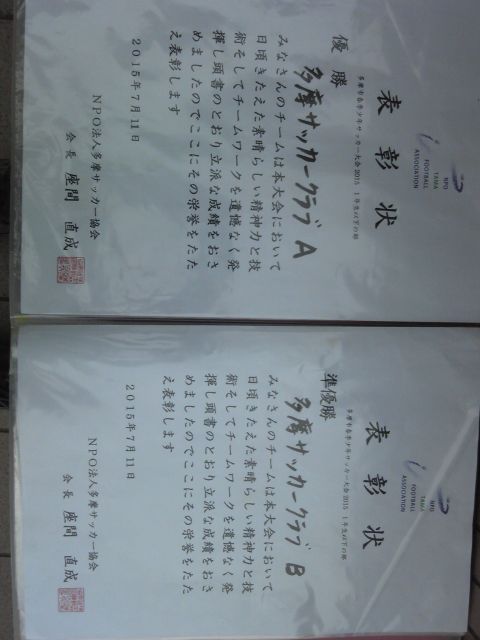 NPO
TAMA
FOOTBALL
ASSOCIATION
表彰状
多摩市春季少年サッカー大会2015 1年生以下の部
優勝
多摩サッカークラブ A
みなさんのチームは本大会において
日頃きたえた素晴らしい精神力と技
術そしてチームワークを遺憾なく発
揮し頭書のとおり立派な成績をおさ
めましたのでここにその栄誉をたた
え表彰します
2015年7月11日
NPO法人多摩サッカー協会
会長 座間 直成
NPO
TAMA
FOOTBALL
ASSOCIATION
表彰状
多摩市春季少年サッカー大会2015 1年生以下の部
準優勝
多摩サッカークラブ B
みなさんのチームは本大会において
日頃きたえた素晴らしい精神力と技
術そしてチームワークを遺憾なく発
揮し頭書のとおり立派な成績をおさ
めましたのでここにその栄誉をたた
え表彰します
2015年7月11日
NPO法人多摩サッカー協会
会長 座間 直成